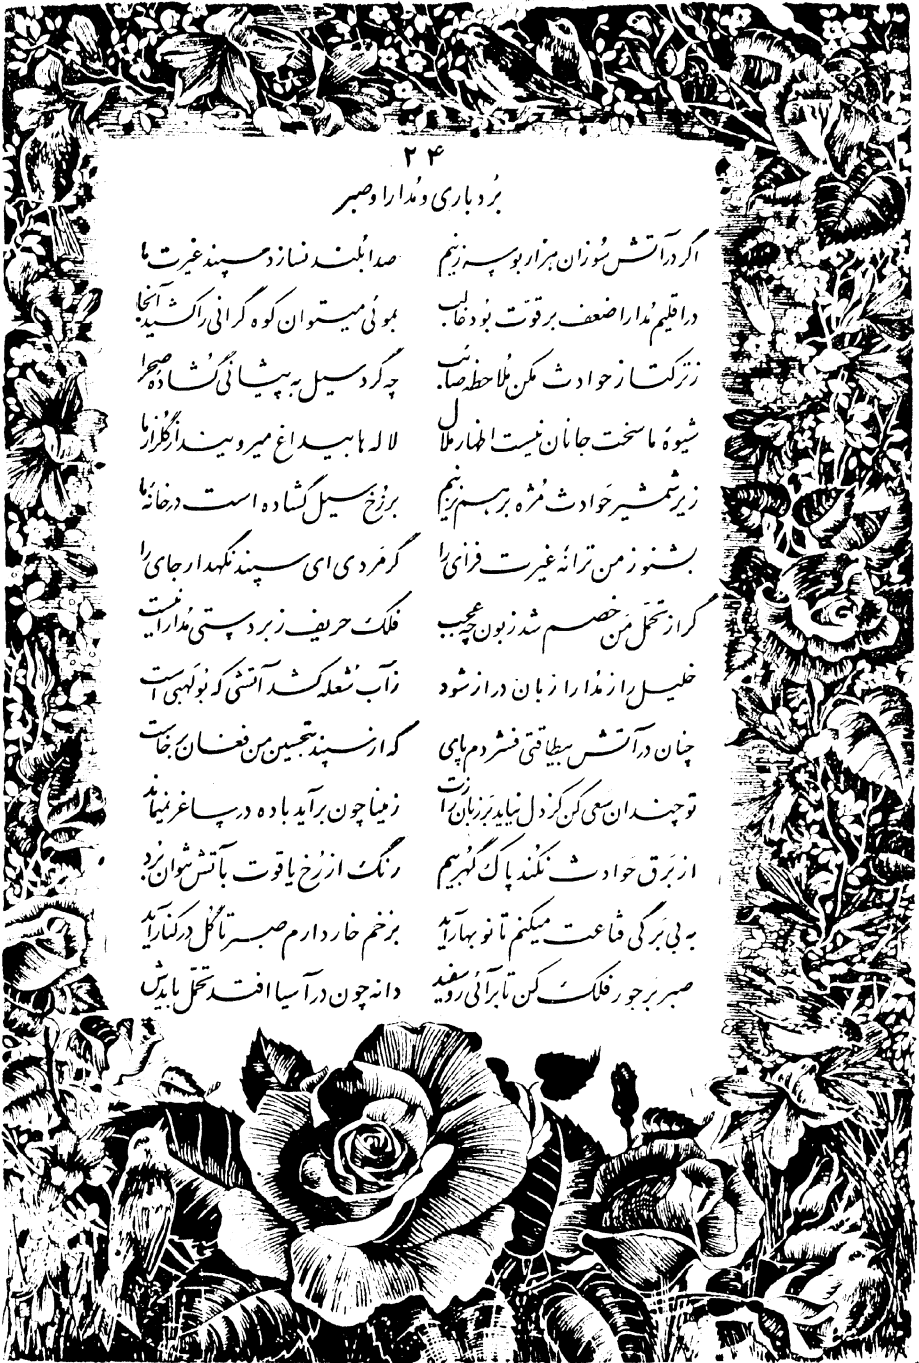 ۲۴
بُردباری و مُدارا و صبر
اگر در آتش سُوزان هزار بوسه زنیم صدا بُلند نسازد سپند غیرت ما
در اقلیم مُدارا ضعف بر قوّت بُود غالب بموئی میتوان کوه گرانی را کشید آنجا
ز ترکتاز حوادث مکن مُلاحظه صائب چه کرد سیل به پیشانی گشادهٔ صحرا
شیوهٔ ما سخت جانان نیست اظهار ملال لاله ها بیداغ میرویند از گلزار ما
زیر شمشیر حَوادث مُژه بر هم نزنیم بر رُخ سیل گشاده است در خانهٔ ما
بشنو ز من ترانهٔ غیرت فزای را گر مَردی ای سپند نگهدار جای را
گر از تحمّل مَن خصم شد زبون چه عجب فلک حریف زبردستی مُدارا نیست
خلیل را ز مُدارا زبان دراز شود ز آب شعله کشد آتشی که بُولَهبی است
چنان در آتش بیطاقتی فشردم پای که از سپند بتحسین من فغان برخاست
تو چندان سعی کن کز دل نیاید بَر زبان رازت ز مینا چون برآید باده در ساغر نمیماند
از بَرق حوادث نکُند پاک گُهر بیم رنگ از رُخ یاقوت بآتش نتوان بُرد
به بی بَرگی قناعت میکنم تا نو بهار آید بزخم خار دارم صبر تا گل در کنار آید
صبر بر جور فلک کن تا برآئی رو سفید دانه چون در آسیا افتد تحمّل بایدش